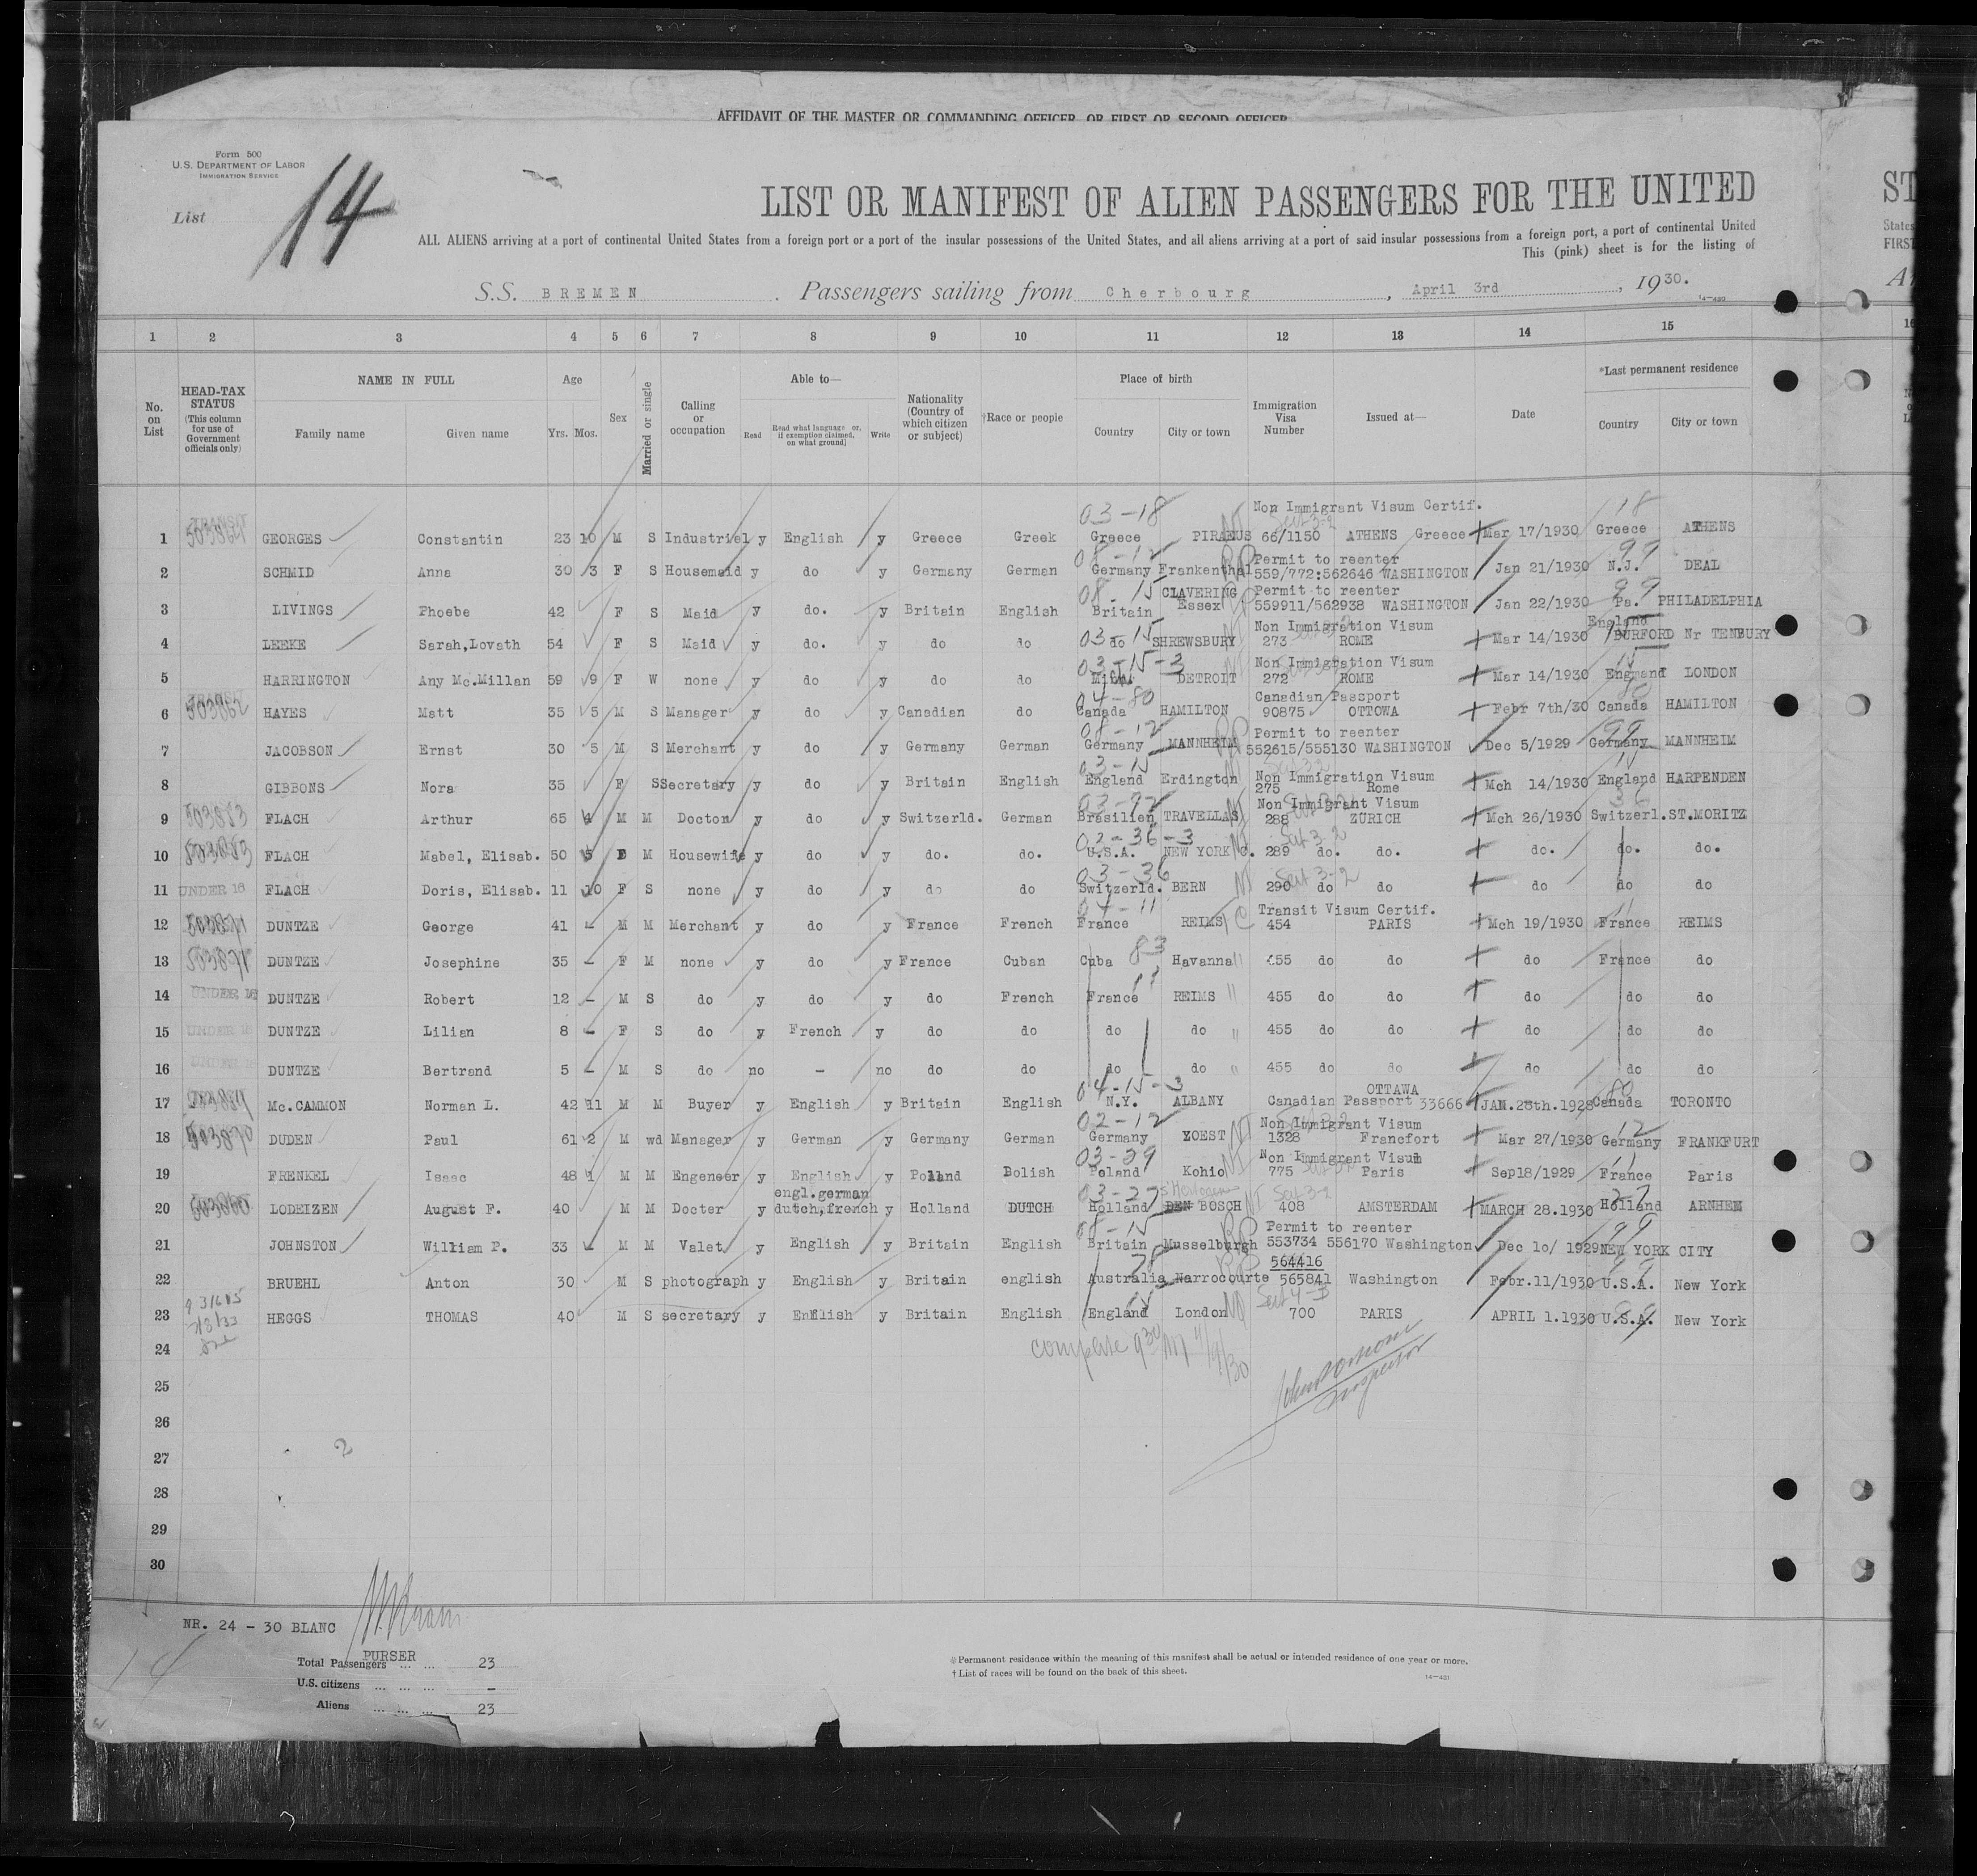 AFFIDAVIT OF THE MASTER OR COMMANDING OFFICER, OR FIRST OR SECOND OFFICER
Form 500
U.S. DEPARTMENT OF LABOR
IMMIGRATION SERVICE
List 14
LIST OR MANIFEST OF ALIEN PASSENGERS FOR THE UNITED ST
ALL ALIENS arriving at a port of continental United States from a foreign port or a port of the insular possessions of the United States, and all aliens arriving at a port of said insular possessions from a foreign port, a port of continental United States
This (pink) sheet is for the listing of FIRST
S.S. BREMEN . Passengers sailing from Cherbourg , April 3rd , 1930.
14-480
1 2 3 4 5 6 7 8 9 10 11 12 13 14 15
No. on List
HEAD-TAX STATUS (This column for use of Government officials only)
NAME IN FULL Family name Given name
Age Yrs. Mos.
Sex
Married or single
Calling or occupation
Able to— Read Read what language or, if exemption claimed, on what ground] Write
Nationality (Country of which citizen or subject)
†Race or people
Place of birth Country City or town
Immigration Visa Number
Issued at—
Date
*Last permanent residence Country City or town
03-18 Non Immigrant Visum Certif. 18
1 TRANSIT GEORGES Constantin 23 10 M S Industriel y English y Greece Greek Greece PIRAEUS 66/1150 ATHENS Greece Mar 17/1930 Greece ATHENS
08-12 Permit to reenter 99
2 SCHMID Anna 30 3 F S Housemaid y do y Germany German Germany Frankenthal 559/772:562646 WASHINGTON Jan 21/1930 N.J. DEAL
08-15 CLAVERING Permit to reenter 99
3 LIVINGS Phoebe 42 F S Maid y do. y Britain English Britain Essex 559911/562938 WASHINGTON Jan 22/1930 Pa. PHILADELPHIA
03 15 Non Immigration Visum England
4 LEEKE Sarah,Lovath 54 F S Maid y do. y do do do SHREWSBURY 273 ROME Mar 14/1930 BURFORD Nr TENBURY
03-15-3 Non Immigration Visum 15
5 HARRINGTON Any Mc.Millan 59 9 F W none y do y do do Mich. DETROIT 272 ROME Mar 14/1930 England LONDON
TRANSIT 04-80 Canadian Passport 80
6 HAYES Matt 35 5 M S Manager y do y Canadian do Canada HAMILTON 90875 OTTOWA Febr 7th/30 Canada HAMILTON
08-12 Permit to reenter 99
7 JACOBSON Ernst 30 5 M S Merchant y do y Germany German Germany MANNHEIM 552615/555130 WASHINGTON Dec 5/1929 Germany MANNHEIM
03-15 Non Immigration Visum
8 GIBBONS Nora 35 F S Secretary y do y Britain English England Erdington 275 Rome Mch 14/1930 England HARPENDEN
Non Immigrant Visum
9 503883 FLACH Arthur 65 4 M M Doctor y do y Switzerld. German Brasilien TRAVELLAS 288 ZURICH Mch 26/1930 Switzerl. ST.MORITZ
02-36-3 Sect 3-2
10 503883 FLACH Mabel, Elisab. 50 5 F M Housewife y do y do. do. U.S.A. NEW YORK C. 289 do. do. do. do. do.
03-36 Sect 3-2
11 UNDER 16 FLACH Doris, Elisab. 11 10 F S none y do y do do Switzerld. BERN 290 do do do do do
04-11 Transit Visum Certif. 11
12 DUNTZE George 41 - M M Merchant y do y France French France REIMS 454 PARIS Mch 19/1930 France REIMS
13 DUNTZE Josephine 35 - F M none y do y France Cuban Cuba 83 Havanna 455 do do do France do
14 UNDER 16 DUNTZE Robert 12 - M S do y do y do French France 11 REIMS 455 do do do do do
15 UNDER 16 DUNTZE Lilian 8 - F S do y French y do do do do 455 do do do do do
16 UNDER 16 DUNTZE Bertrand 5 - M S do no - no do do do do 455 do do do do do
04-15-3 OTTAWA 80
17 Mc.CAMMON Norman L. 42 11 M M Buyer y English y Britain English N.Y. ALBANY Canadian Passport 33666 JAN.28th.1928 Canada TORONTO
02-12 Non Immigrant Visum 12
18 503870 DUDEN Paul 61 2 M wd Manager y German y Germany German Germany ZOEST 1328 Francfort Mar 27/1930 Germany FRANKFURT
03-29 Non Immigrant Visum 11
19 FRENKEL Isaac 48 1 M M Engeneer y English y Poland Polish Poland Kohio 775 Paris Sep18/1929 France Paris
engl.german 03-27 Sect 3-2 27
20 LODEIZEN August F. 40 M M Docter y dutch,french y Holland DUTCH Holland DEN BOSCH 408 AMSTERDAM MARCH 28.1930 Holland ARNHEM
08-15 Permit to reenter 99
21 JOHNSTON William P. 33 M M Valet y English y Britain English Britain Musselburgh 553734 556170 Washington Dec 10/ 1929 NEW YORK CITY
564416
22 BRUEHL Anton 30 M S photograph y English y Britain english Australia Narrocourte 565841 Washington Febr.11/1930 U.S.A. New York
23 HEGGS THOMAS 40 M S secretary y English y Britain English England London 700 PARIS APRIL 1.1930 U.S.A. New York
24 complete 9 30
25 Inspector
26
27 2
28
29
30
NR. 24 - 30 BLANC
PURSER
Total Passengers ... ... 23
U.S. citizens ... ... ... -
Aliens ... ... ... 23
14
*Permanent residence within the meaning of this manifest shall be actual or intended residence of one year or more.
†List of races will be found on the back of this sheet.
14-481